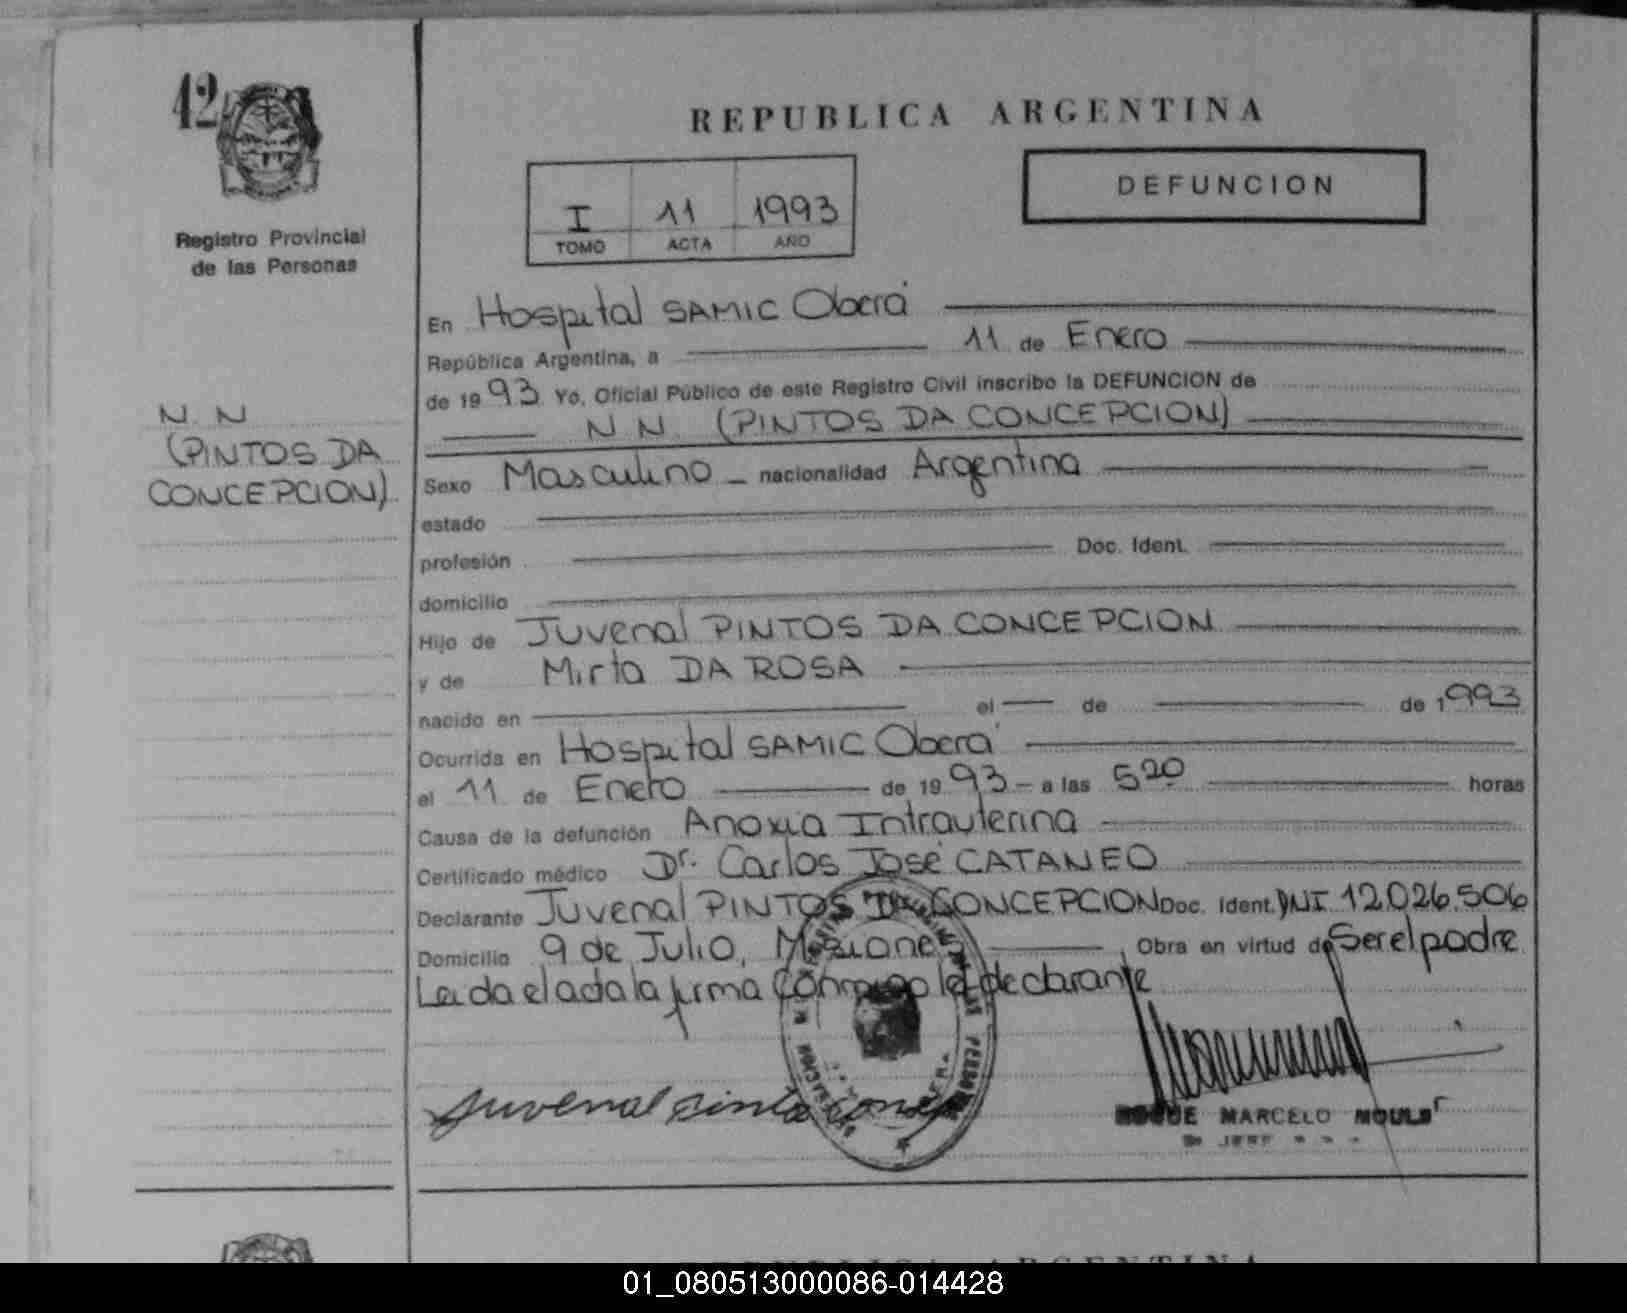 42
Registro Provincial
de las Personas
N. N
(PINTOS DA
CONCEPCION)
REPUBLICA ARGENTINA
I 11 1993
TOMO ACTA AÑO
DEFUNCION
En Hospital SAMIC Oberá
República Argentina, a 11 de Enero
de 1993 Yo, Oficial Público de este Registro Civil inscribo la DEFUNCION de
N N. (PINTOS DA CONCEPCION)
Sexo Masculino - nacionalidad Argentina
estado
profesión Doc. Ident.
domicilio
Hijo de Juvenal PINTOS DA CONCEPCION
y de Mirta DA ROSA
nacido en el de de 1993
Ocurrida en Hospital SAMIC Oberá
el 11 de Enero de 1993 - a las 5 20 horas
Causa de la defunción Anoxia Intrauterina
Certificado médico Dr. Carlos José CATANEO
Declarante Juvenal PINTOS DA CONCEPCION Doc. Ident. DNI 12.026.506
Domicilio 9 de Julio, Misiones Obra en virtud de Ser el padre
Leida el acta la firma conmigo el declarante
Juvenal Pinto
MARCELO
JEFE
REPUBLICA ARGENTINA
01_080513000086-014428